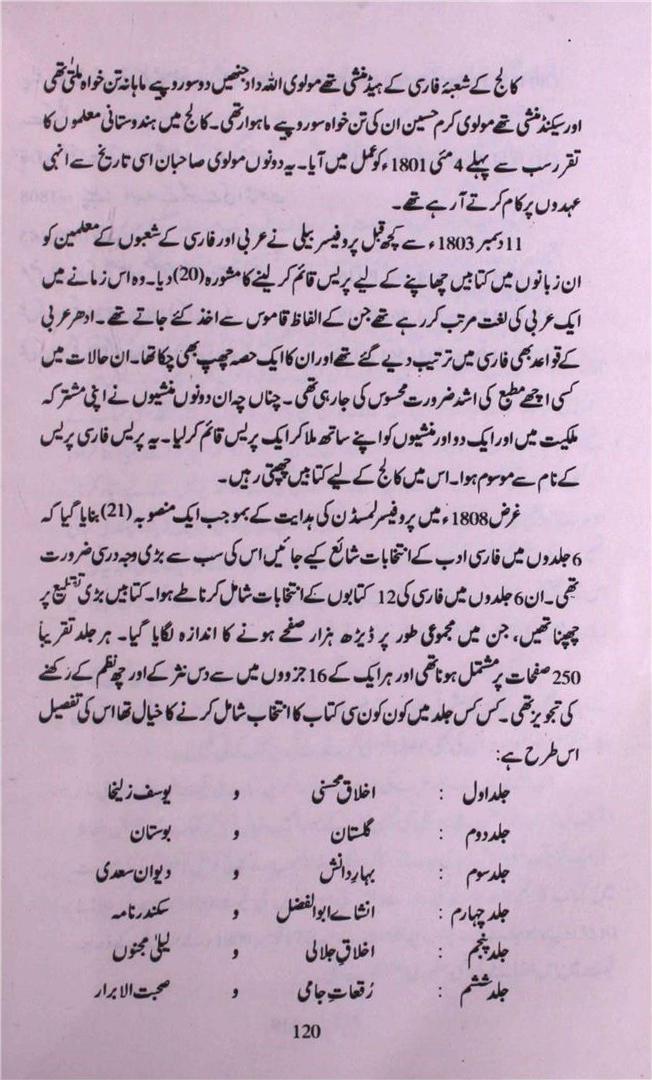 کالج کے شعبۂ فارسی کے ہیڈ منشی تھے مولوی اللہ داد جنھیں دو سو روپے ماہانہ تن خواہ ملتی تھی
اور سیکنڈ منشی تھے مولوی کرم حسین ان کی تن خواہ سو روپے ماہوار تھی۔ کالج میں ہندوستانی معلموں کا
تقرر سب سے پہلے 4 مئی 1801ء کو عمل میں آیا۔ یہ دونوں مولوی صاحبان اسی تاریخ سے انہی
عہدوں پر کام کرتے آ رہے تھے۔
11 دسمبر 1803ء سے کچھ قبل پروفیسر بیلی نے عربی اور فارسی کے شعبوں کے معلمین کو
ان زبانوں میں کتابیں چھاپنے کے لیے پریس قائم کر لینے کا مشورہ (20) دیا۔ وہ اس زمانے میں
ایک عربی کی لغت مرتب کر رہے تھے جن کے الفاظ قاموس سے اخذ کئے جاتے تھے۔ ادھر عربی
کے قواعد بھی فارسی میں ترتیب دیے گئے تھے اور ان کا ایک حصہ چھپ بھی چکا تھا۔ ان حالات میں
کسی اچھے مطبع کی اشد ضرورت محسوس کی جا رہی تھی۔ چناں چہ ان دونوں منشیوں نے اپنی مشترکہ
ملکیت میں اور ایک دو اور منشیوں کو اپنے ساتھ ملا کر ایک پریس قائم کر لیا۔ یہ پریس فارسی پریس
کے نام سے موسوم ہوا۔ اس میں کالج کے لیے کتابیں چھپتی رہیں۔
غرض 1808ء میں پروفیسر لمسڈن کی ہدایت کے بموجب ایک منصوبہ (21) بنایا گیا کہ
6 جلدوں میں فارسی ادب کے انتخابات شائع کیے جائیں اس کی سب سے بڑی وجہ درسی ضرورت
تھی۔ ان 6 جلدوں میں فارسی کی 12 کتابوں کے انتخابات شامل کرنا طے ہوا۔ کتابیں بڑی تقطیع پر
چھپنا تھیں، جن میں مجموعی طور پر ڈیڑھ ہزار صفحے ہونے کا اندازہ لگایا گیا۔ ہر جلد تقریباً
250 صفحات پر مشتمل ہونا تھی اور ہر ایک کے 16 جزووں میں سے دس نثر کے اور چھ نظم کے رکھنے
کی تجویز تھی۔ کس کس جلد میں کون کون سی کتاب کا انتخاب شامل کرنے کا خیال تھا اس کی تفصیل
اس طرح ہے:
جلد اول : اخلاق محسنی و یوسف زلیخا
جلد دوم : گلستان و بوستان
جلد سوم : بہار دانش و دیوان سعدی
جلد چہارم : انشاے ابوالفضل و سکندر نامہ
جلد پنجم : اخلاقِ جلالی و لیلیٰ مجنوں
جلد ششم : رقعاتِ جامی و صحبت الابرار
120